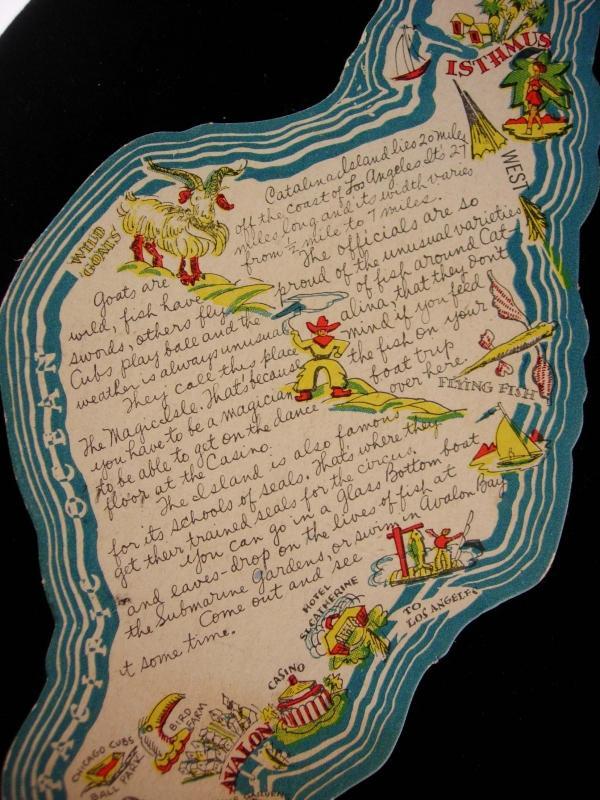 ISTHMUS
WEST
WILD
GOATS
Catalina Island lies 20 miles
off the coast of Los Angeles. It's 27
miles long and its width varies
from ½ mile to 7 miles.
Goats are
wild, fish have
swords, others fly
Cubs play ball and the
weather is always unusual
They call this place
The Magic Isle. That's because
you have to be a magician
to be able to get on the dance
floor at the Casino.
The officials are so
proud of the unusual varieties
of fish around Cat-
alina that they don't
mind if you feed
the fish on your
boat trip
over here.
FLYING FISH
The Island is also famous
for its schools of seals. That's where they
get their trained seals for the circus.
You can go in a Glass Bottom boat
and eaves-drop on the lives of fish at
the Submarine Gardens, or swim in Avalon Bay
Come out and see
it some time.
PACIFIC OCEAN
HOTEL
ST. CATHERINE
TO
LOS ANGELES
CASINO
BIRD
FARM
CHICAGO CUBS
BALL PARK
AVALON